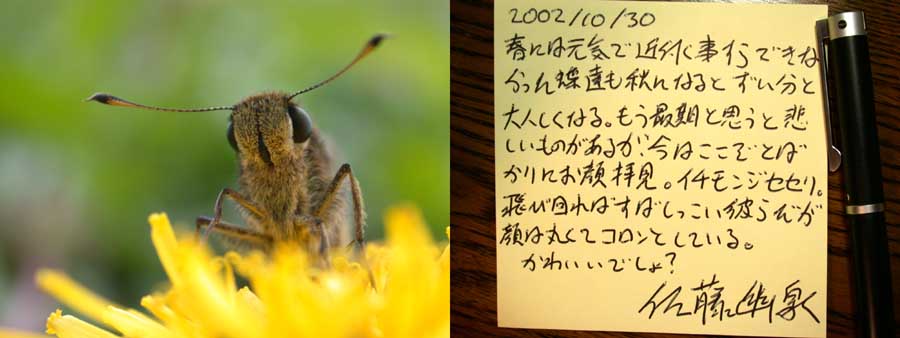 2002/10/30
春には元気で近付く事すらできな
かった蝶達も秋になるとずい分と
大人しくなる。もう最期と思うと悲
しいものがあるが今はここぞとば
かりにお顔拝見。イチモンジセセリ。
飛び回ればすばしっこい彼らだが
顔は丸くてコロンとしている。
かわいいでしょ?
佐藤